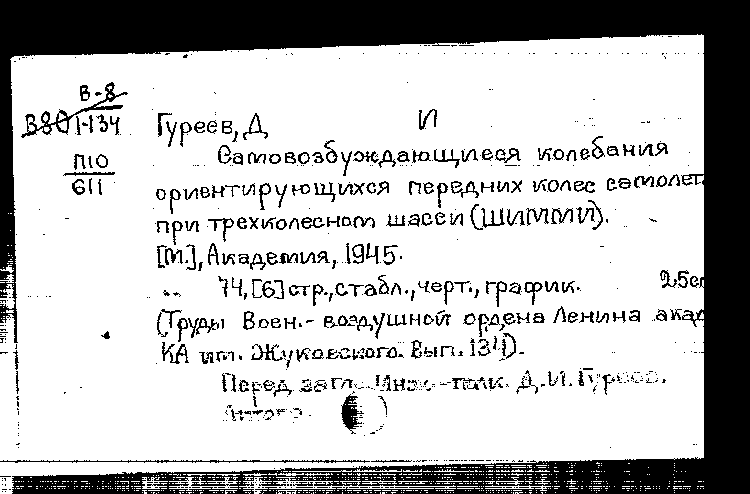 В-8
В80 1-134
Гуреев, Д И
П10
611
Самовозбуждающиеся колебания
ориентирующихся передних колес самолет
при трехколесном шасси (ШИММИ).
[М.], Академия, 1945.
74, [6] стр., с табл., черт., график. 25см
(Труды Воен.-воздушной ордена Ленина акад
КА им. Жуковского. Вып. 134).
Перед загл. Инж.-полк. Д.И. Гуреев.